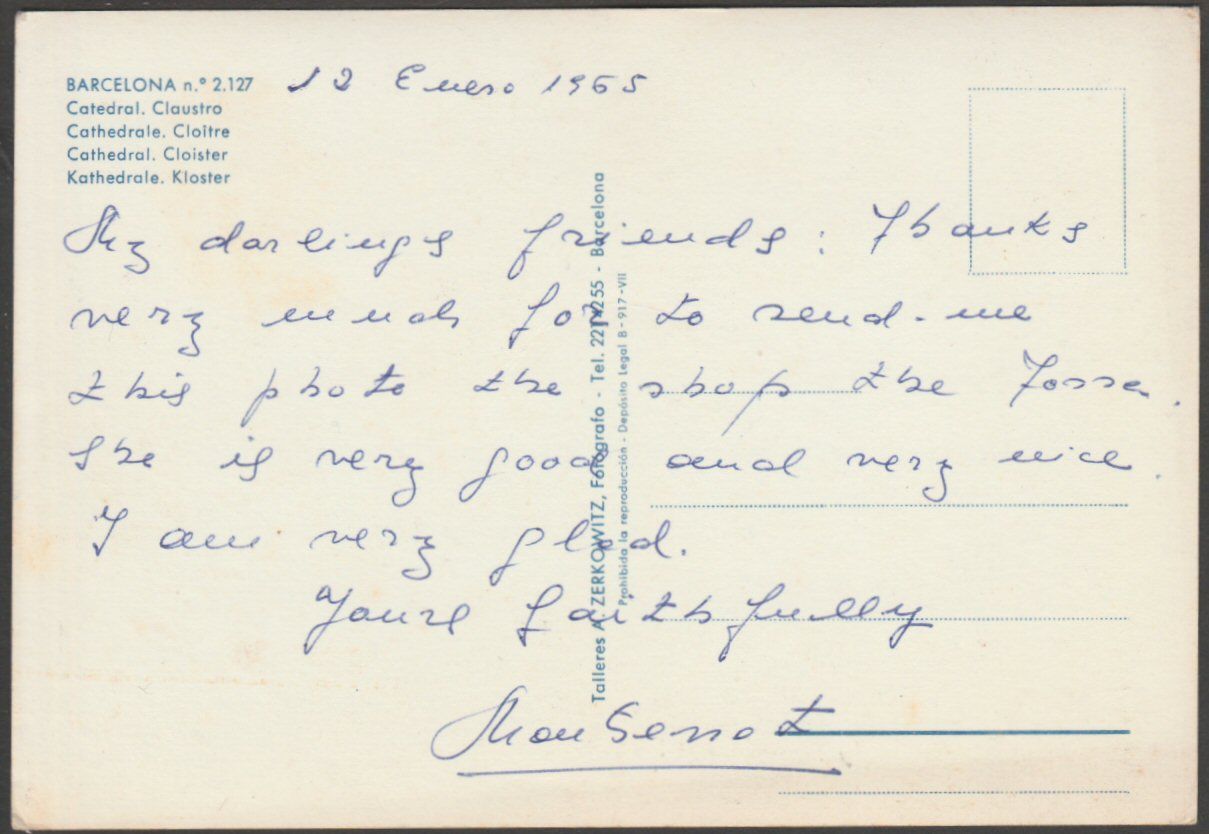 BARCELONA n.º 2.127
Catedral. Claustro
Cathedrale. Cloître
Cathedral. Cloister
Kathedrale. Kloster
12 Enero 1965
My darlings friends: Thanks
very much for to send-me
this photo the shop the Tossa.
She is very good and very nice.
I am very glad.
Yours faithfully
Montserrat
Talleres A. ZERKOWITZ, Fotógrafo - Tel. 2214255 - Barcelona
Prohibida la reproducción - Depósito Legal B - 917 - VII